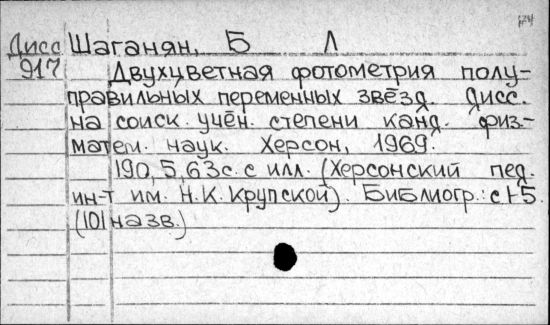 Дисс Шаганян, Б Л
917 Двухцветная фотометрия полу-
правильных переменных звёзд. Дисс.
на соиск. учён. степени канд. физ-
матем. наук. Херсон, 1969.
190, 5, 63 с. с илл. (Херсонский пед.
ин-т им. Н.К. Крупской). Библиогр.: с 1-5.
(101 назв.)